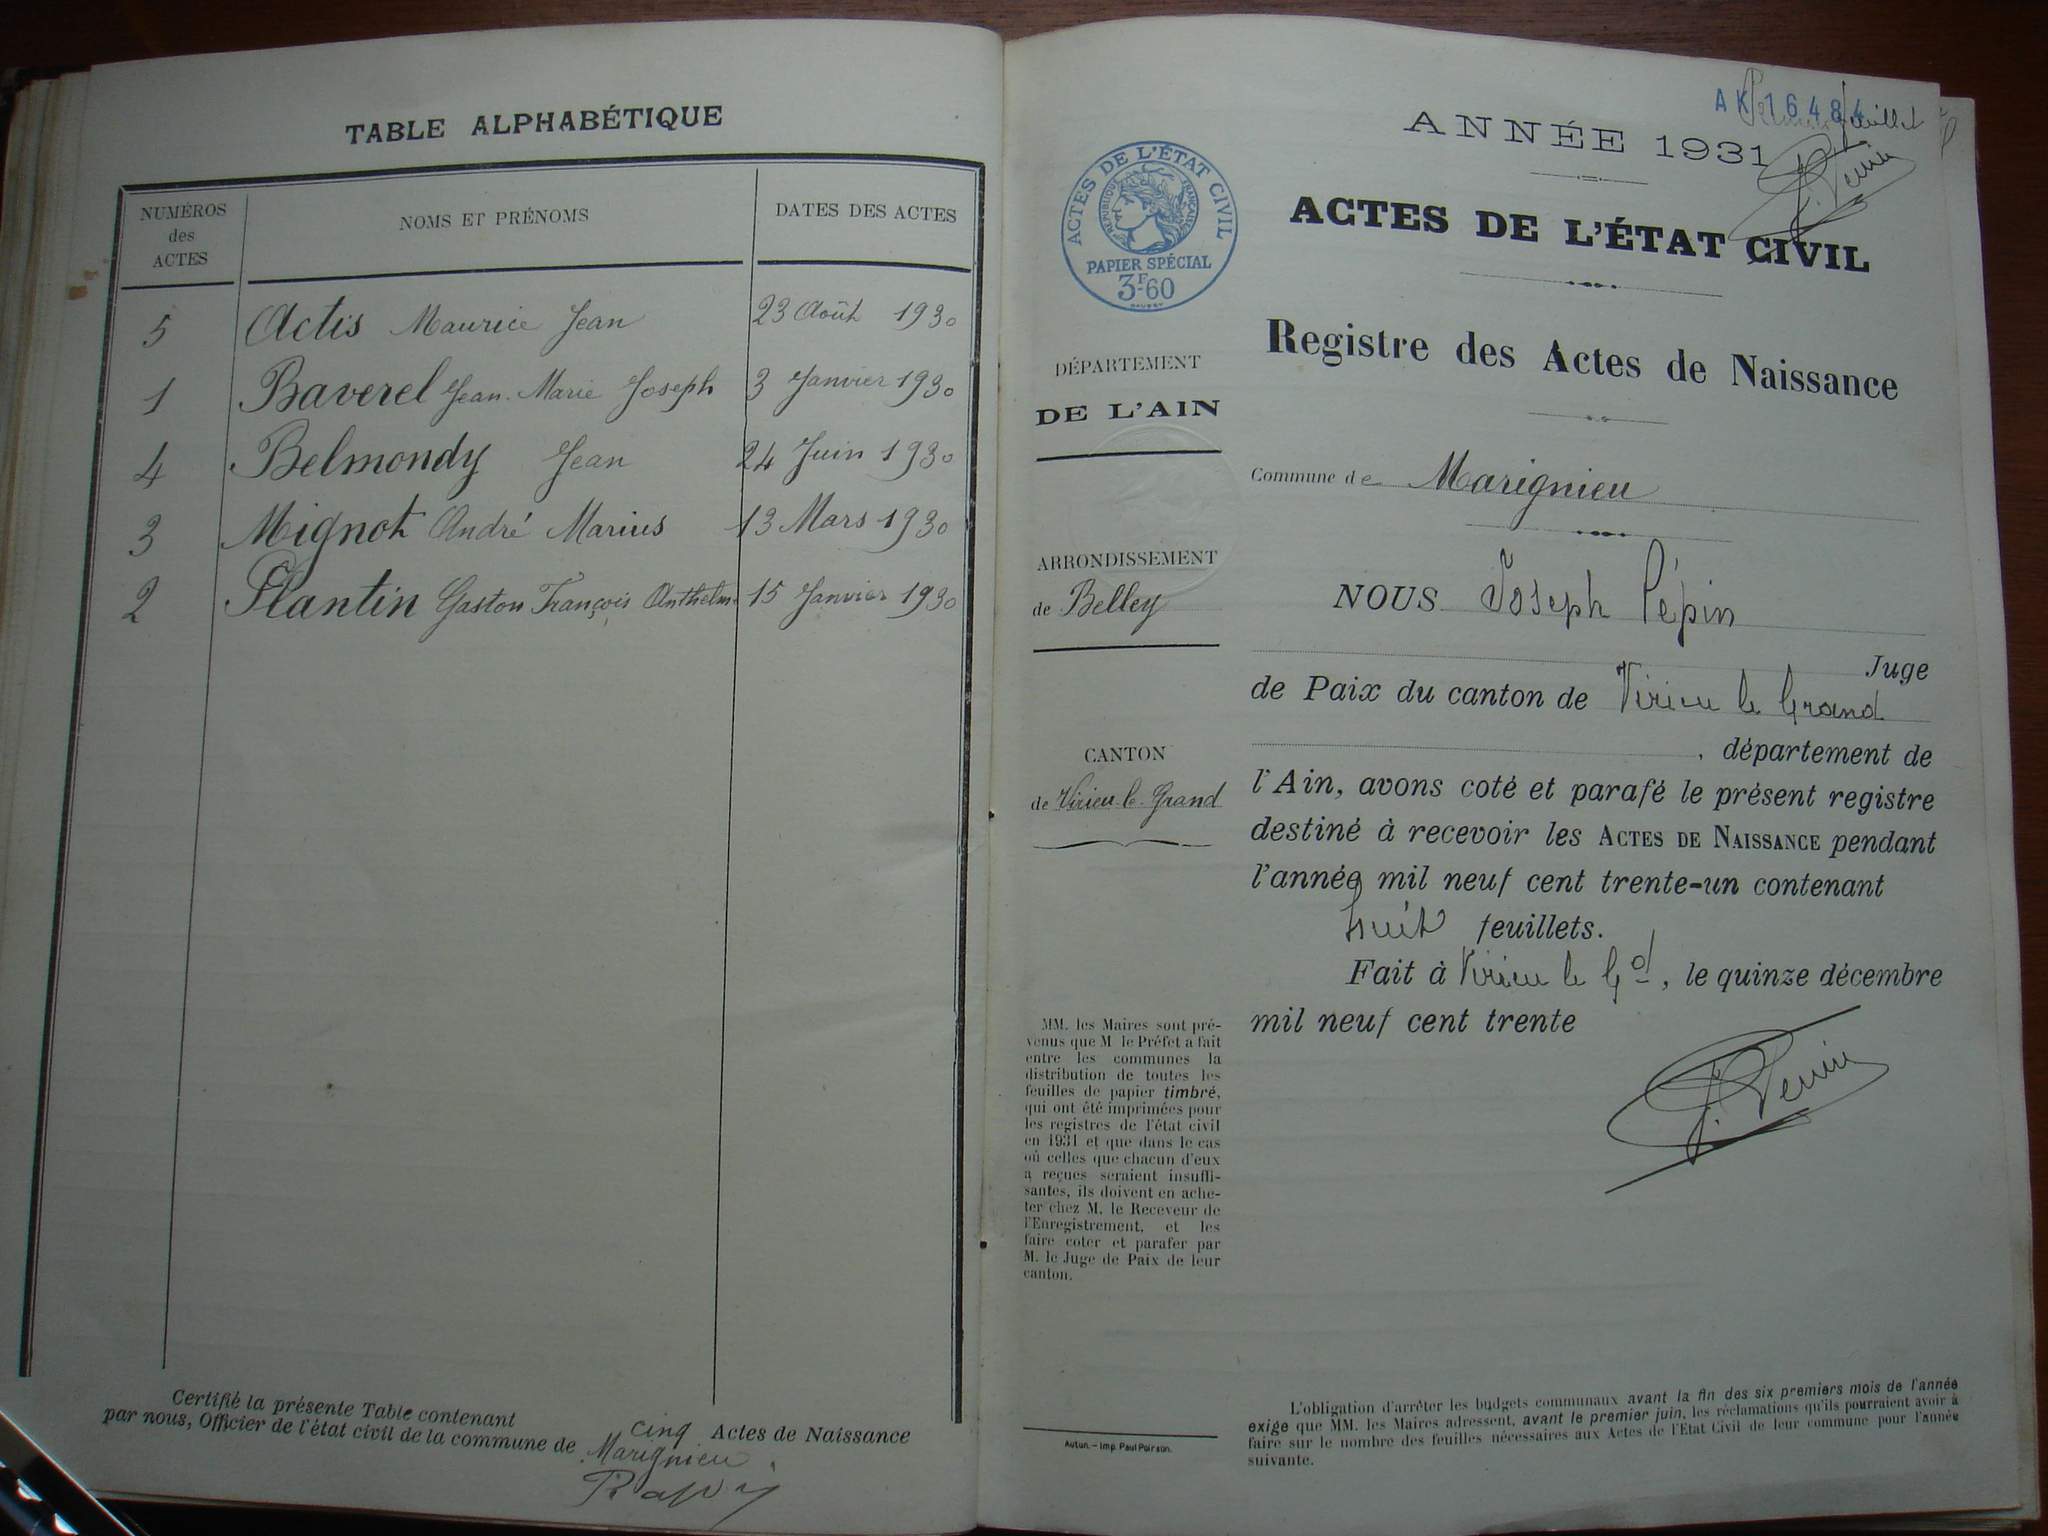 TABLE ALPHABÉTIQUE
NUMÉROS des ACTES
NOMS ET PRÉNOMS
DATES DES ACTES
5 Actis Maurice Jean 23 Août 1930
1 Baverel Jean-Marie Joseph 3 Janvier 1930
4 Belmondy Jean 24 Juin 1930
3 Mignot André Marius 13 Mars 1930
2 Plantin Gaston François Anthelm 15 Janvier 1930
Certifié la présente Table contenant cinq Actes de Naissance
par nous, Officier de l'état civil de la commune de Marignieu
AK 16484
feuillet
ANNÉE 1931
ACTES DE L'ÉTAT CIVIL
RÉPUBLIQUE FRANÇAISE
PAPIER SPÉCIAL
3F60
ACTES DE L'ÉTAT CIVIL
Registre des Actes de Naissance
DÉPARTEMENT
DE L'AIN
Commune de Marignieu
ARRONDISSEMENT
de Belley
NOUS Joseph Pépin
Juge
de Paix du canton de Virieu le Grand
, département de
CANTON
de Virieu-le-Grand
l'Ain, avons coté et parafé le présent registre
destiné à recevoir les ACTES DE NAISSANCE pendant
l'année mil neuf cent trente-un contenant
huit feuillets.
Fait à Virieu le Gd, le quinze décembre
mil neuf cent trente
MM. les Maires sont pré-
venus que M. le Préfet a fait
entre les communes la
distribution de toutes les
feuilles de papier timbré,
qui ont été imprimées pour
les registres de l'état civil
en 1931 et que dans le cas
où celles que chacun d'eux
a reçues seraient insuffi-
santes, ils doivent en ache-
ter chez M. le Receveur de
l'Enregistrement, et les
faire coter et parafer par
M. le Juge de Paix de leur
canton.
Autun. — Imp. Paul Poirson.
L'obligation d'arrêter les budgets communaux avant la fin des six premiers mois de l'année
exige que MM. les Maires adressent, avant le premier juin, les réclamations qu'ils pourraient avoir à
faire sur le nombre des feuilles nécessaires aux Actes de l'Etat Civil de leur commune pour l'année
suivante.